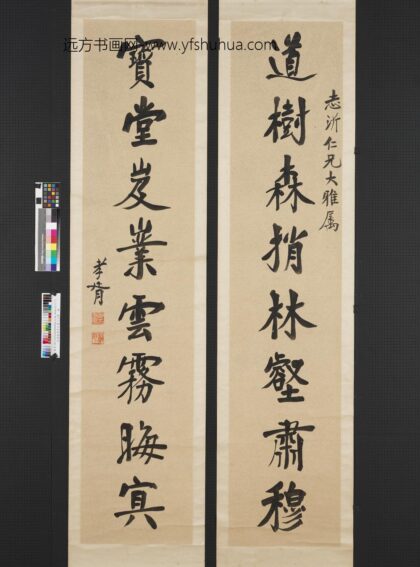 远方书画网_www.yfshuhua.com
道樹森捎林壑肅穆
志沂仁兄大雅屬
寶堂岌嶪雲霧晦冥
孝胥